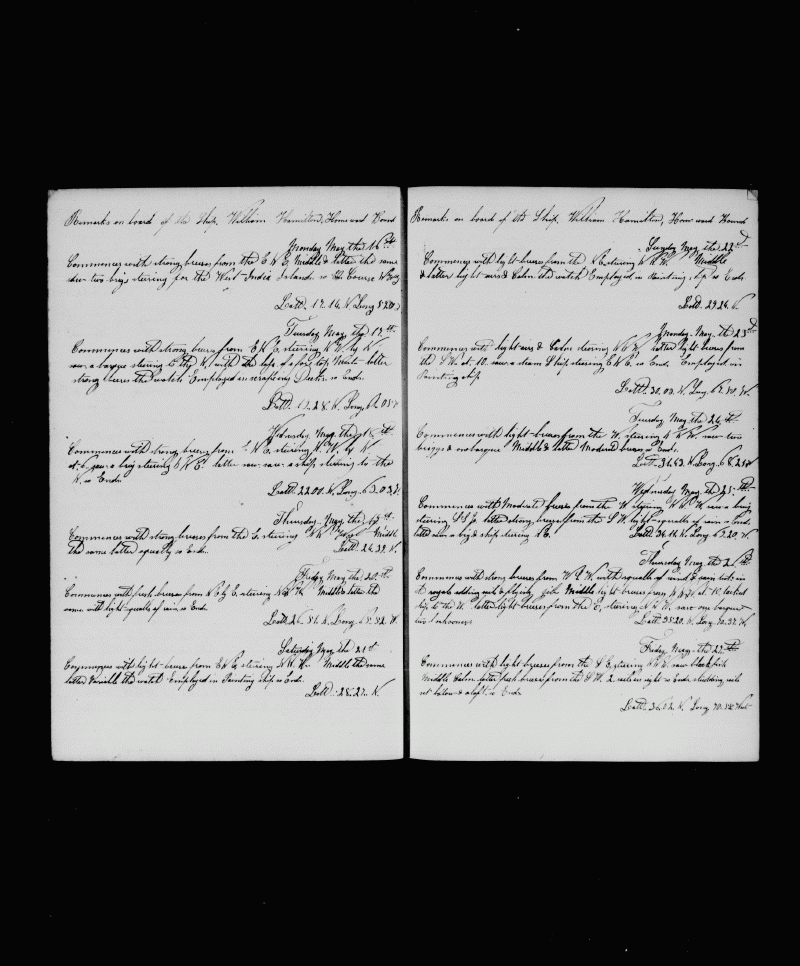 Remarks on board of the Ship William Hamilton, Homeward Bound
Monday May the 16th
Commences with strong breeses from the E N E Middle & latter the same
saw two brigs steering for the West India Islands so Ends Course W
Latt. 17.14. N Long
Tuesday May the 17th
Commences with strong breeses from E N E steering N W by N
saw a barque steering to the N. with the loss of a fore top Mast latter
strong breeses the watch Employed in scraping Deck so Ends
Latt. 19.28. N Long
Wedesday May the 18th
Commences with strong breeses from E N E steering N. W. by N.
at 6 saw a brig steering latter saw a ship steering to the
N. so Ends
Latt. 22.00. N. Long.
Thursday May the 19th
Commences with strong breeses from the E. steering Middle
the same latter squally so Ends. Latt. 24.39. N.
Friday May the 20th
Commences with fresh breeses from N E steering Middle & latter the
same with light squalls of rain so Ends
Latt. 26.51. N. Long. 65.52. W.
Saturday May the 21st
Commences with light breese from E N E steering N. W. Middle the same
latter Variable the watch Employed in Painting ship so Ends.
Latt. 28.27. N.
Remarks on board of the Ship William Hamilton, Homeward Bound
Sunday May the 22d
Commences with light breeses from the steering Middle
& latter light airs & Calm the watch Employed in Painting ship so Ends
Latt. 29.24. N.
Monday May the 23d
Commences with light airs & Calm steering latter light breeses from
the S W. at 10. saw a steam Ship steering E N E. so Ends Employed in
Painting ship
Latt. 30.00. N. Long. W.
Tuesday May the 24th
Commences with light breeses from the W. steering N N W. saw two
briggs & one barque Middle & latter Moderate breeses so Ends.
Latt. 31.43. N. Long. 68.21 W
Wednesday May the 25th
Commences with Moderate breeses from the W steering N N W saw a brig
steering latter strong breeses from the S W. light squalls of rain so Ends
latter saw a brig & ship steering N E. Latt. N. Long. W
Thursday May the 26th
Commences with strong breeses from W S W with squalls of wind & rain took in
Middle light breeses from at 10. tacked
ship to the W. latter light breeses from the E, steering N N W. saw one barque
Latt. 35.20. N. Long. 70.37. W
Friday May the 27th
Commences with light breeses from the S E steering N N W. saw blackfish
Middle Calm latter fresh breeses from the S W. 2 sails in sight so Ends studding sails
set below & aloft so Ends
Latt. 36.02. N. Long. 70. West